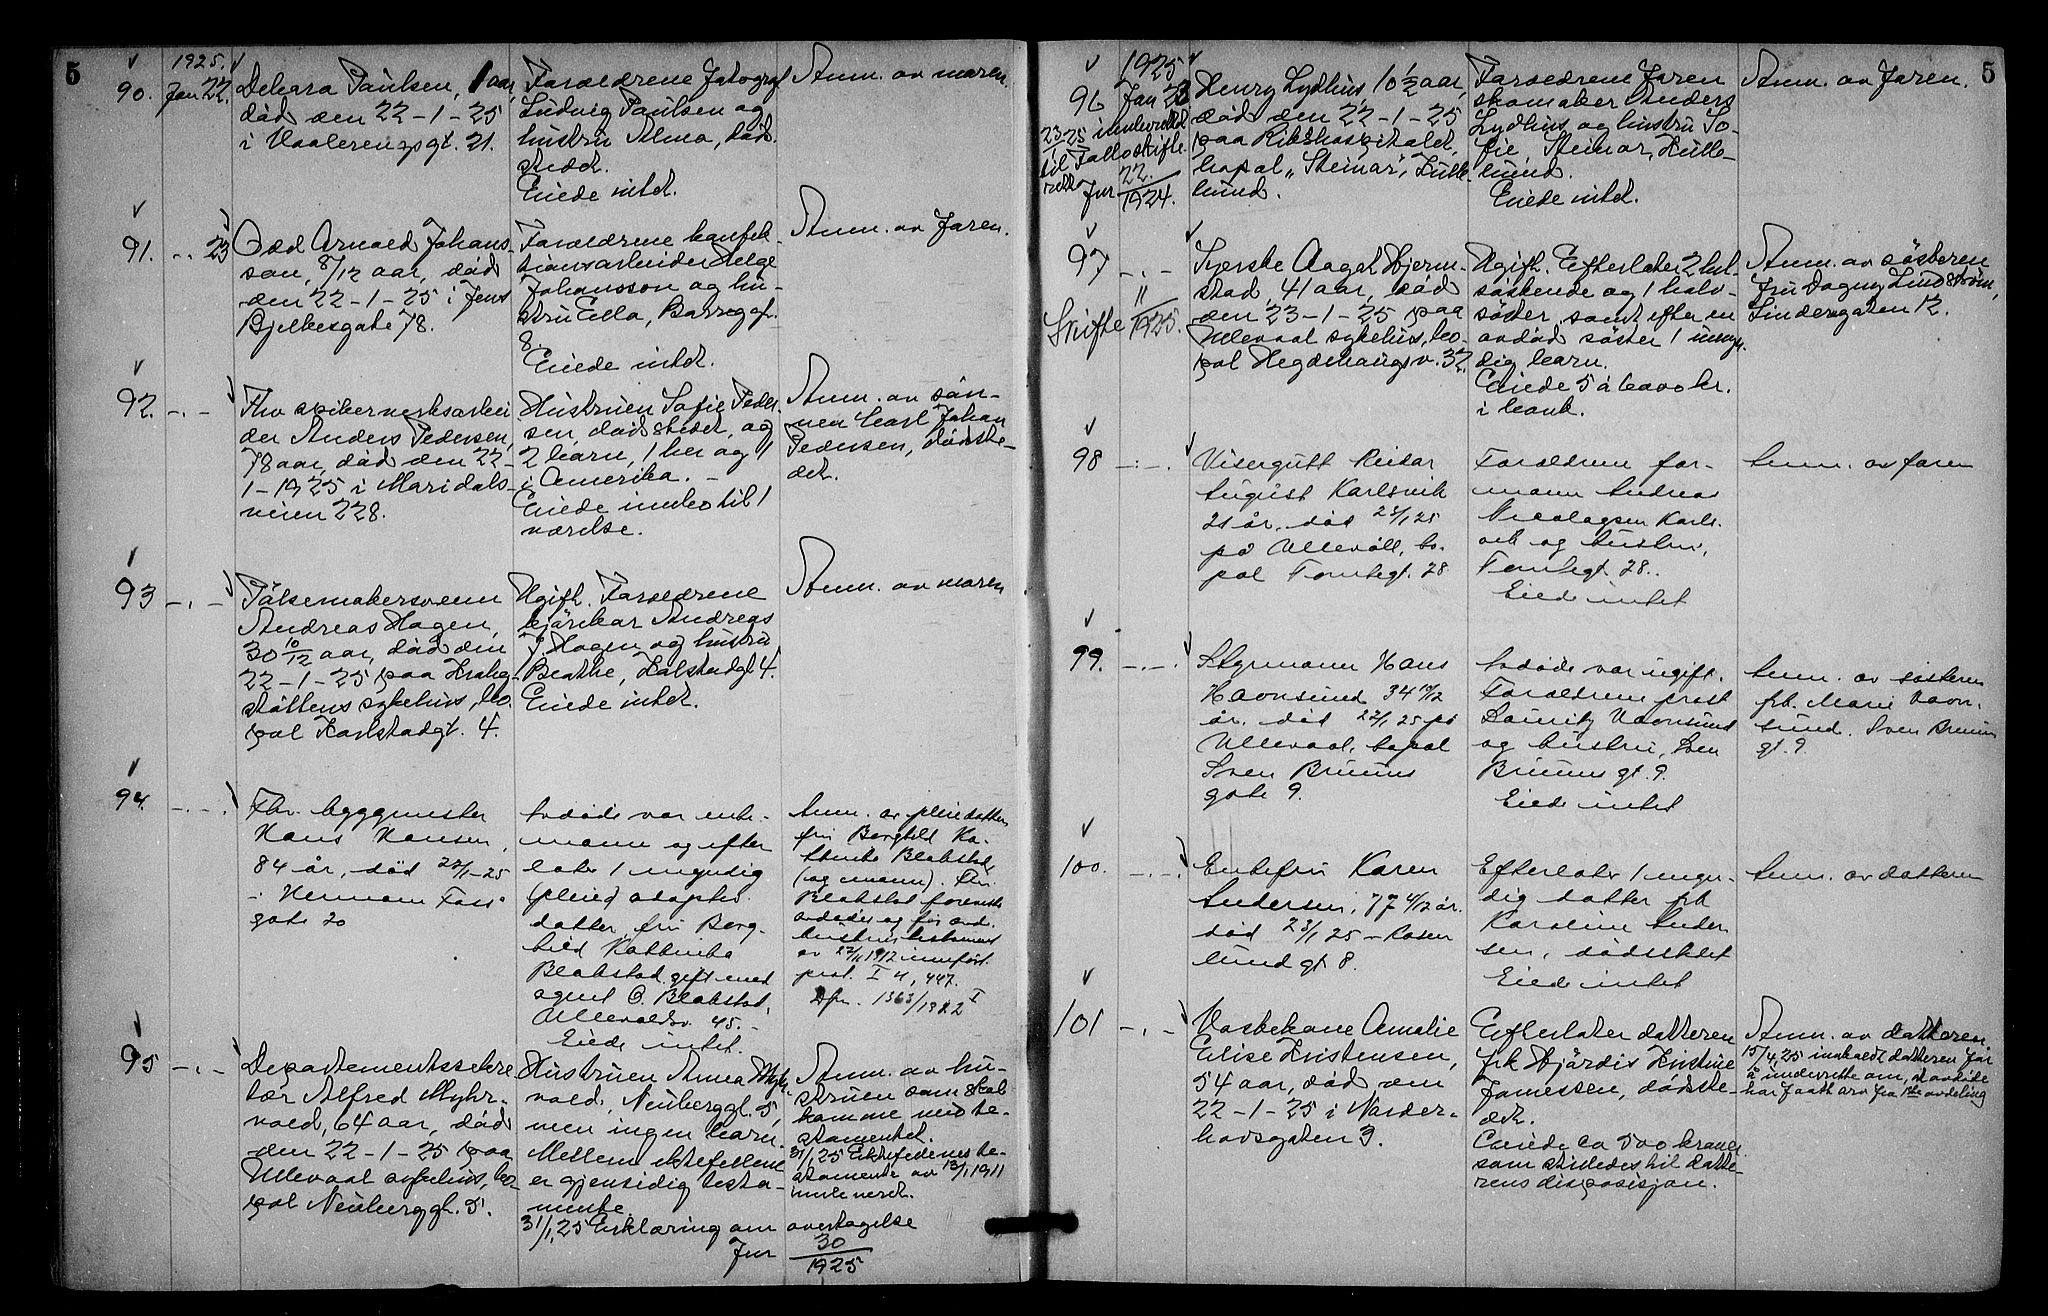 5
1925.
90. Jan 22.
Debora Paulsen, 1 aar,
död den 22-1-25
i Vaalerengsgt. 21.
Foreldrene fotograf
Ludvig Paulsen og
hustru Alma, död-
stedet.
Eiede intet.
Anm. av moren.
91. -.- 23
Odd Arnold Johans-
son, 8/12 aar, död
den 22-1-25 i Jens
Bjelkesgate 78.
Foreldrene konfek-
tionsarbeider Helge
Johansson og hu-
stru Ella, Borggt.
8.
Eiede intet.
Anm. av faren.
92. -.-
Fhv spikerverksarbei
der Anders Pedersen,
78 aar, död den 22-
1-1925 i Maridals-
veien 228.
Hustruen Sofie Peder-
sen, dödstedet, og
2 barn, 1 her og 1
i Amerika. -
Eiede innbo til 1
værelse.
Anm. av sön-
nen Carl Johan
Pedersen, dödste-
det.
93 -.-
Pölsemakersvenn
Andreas Hagen,
30 10/12 aar, död den
22-1-25 paa Krohg-
stöttens sykehus, bo-
pol Karlstadgt. 4.
Ugift. Foreldrene
kjörekar Andreas
J. Hagen og hustru
Beathe, Karlstadgt 4.
Eiede intet.
Anm. av moren
94. -.-
Fhv. byggmester
Hans Hansen,
84 år, död 22/1-25
i Hermann Foss'
gate 20
Avdöde var enke-
mann og efter
later 1 myndig
(pleie) adoptiv
datter, fru Borg-
hild Kathinka
Blakstad gift med
agent O. Blakstad,
Ullevoldsv. 45. -
Eiede intet.
Anm. av pleiedatteren
fru Borghild Ka-
thinka Blakstad
(og mann). Fru
Blakstad foreviste
avdödes ogför avd.
hustrus testament
av 27/11 1912 innfört
prot. I 4, 447.
Dfn. 1363/1922 I
95 -.-
Departementssekre
tær Alfred Myhr-
vold, 64 aar, död
den 22-1-25 paa
Ullevaal sykehus, bo-
pol Neuberggt. 5.
Hustruen Anna Myhr
vold, Neuberggt. 5,
men ingen barn.
Mellem ektefellene
er gjensidig testa-
mente.
31/1,25 Erklæring om overtagelse
Jnr 30/1925
Anm. av hu-
struen som skal
komme med te-
stamentet.
31/1,25 Ektefellenes te-
stamente av 13/1 1911
innlevert.
5
1925
96 Jan 23
23/25 innberettet
til Folloskifte-
rett
Jnr 22./1924.
Henry Lydhus 10 1/2 aar,
död den 22-1-25
paa Rikshospitalet,
bopol "Steinar", Kulle-
bund.
Foreldrene faren
skomaker Anders
Lydhus og hustru So-
fie, Steinar, Kulle-
bund.
Eiede intet.
Anm. av faren.
97 -.-
Skifte 11/1925.
Syerske Aagot Hjerm-
stad, 41 aar, död
den 23-1-25 paa
Ullevaal sykehus, bo-
pol Hegdehaugsv. 32.
Ugift. Efterlater 2 hel-
söskende og 1 halv-
söster, samt efter en
avdöd söster 1 umyn-
dig barn.
Eiede 5 à 6000 kr.
i bank.
Anm. av sösteren
fru Dagny Lindström,
Lindersgaten 12.
98 -.-
Visergutt Reidar
August Karlsvik
21 år, död 22/1 25
på Ullevåll, bo-
pol Tomtegt. 28
Foreldrene for-
mann Andreas
Nicolaysen Karls-
vik og hustru,
Tomtegt. 28.
Eiede intet
Anm. av faren
99. -.-
Styrmann Hans
Havnsund 34 10/12
år, död 22/1 25 på
Ullevaal, bopol
Sven Bruuns
gate 9.
Avdöde var ugift.
Foreldrene prest
Lauritz Havnsund
og hustru, Sven
Bruuns gt. 9.
Eiede intet
Anm. av sösteren
frk. Marie Havn-
sund, Sven Bruuns
gt. 9.
100. -.-
Enkefru Karen
Andersen, 77 4/12 år.
död 23/1 25 - Rosen
lund gt 8.
Efterlater 1 myn-
dig datter frk
Karoline Ander
sen, dödsstedet
Eiede intet
Anm. av datteren
101 -.-
Vaskekone Amalie
Elise Kristensen,
54 aar, död den
22-1-25 i Norder-
hovsgaten 3.
Efterlater datteren
frk Hjördis Kristine
Jonassen, dödste-
det.
Eiede ca 500 kroner
som stilledes til datte-
rens disposisjon.
Anm. av datteren
15/4.25 innkaldt datteren for
å underrette om, at avdöde
har faatt arv fra 1ste avdeling